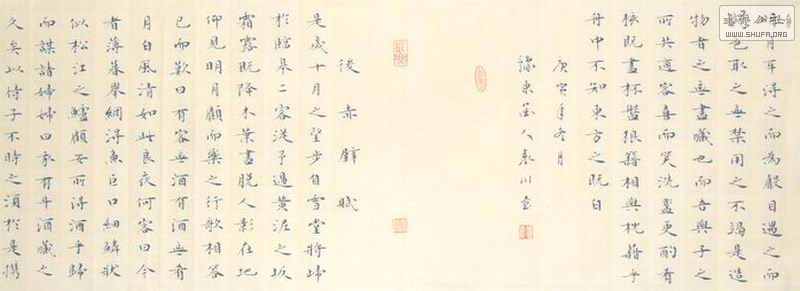 月耳得之而為聲目遇之而
色取之無禁用之不竭是造
物者之無盡藏也而吾與子之
所共適客喜而笑洗盞更酌肴
核既盡杯盤狼籍相與枕藉乎
舟中不知東方之既白
庚寅年冬月
豫東人袁川
後赤壁賦
是歲十月之望步自雪堂將歸
於臨皋二客從予過黃泥之坂
霜露既降木葉盡脫人影在地
仰見明月顧而樂之行歌相答
已而歎曰有客無酒有酒無肴
月白風清如此良夜何客曰今
者薄暮舉網得魚巨口細鱗狀
似松江之鱸顧安所得酒乎歸
而謀諸婦婦曰我有斗酒藏之
久矣以待子不時之須於是攜
WWW.SHUFA.ORG